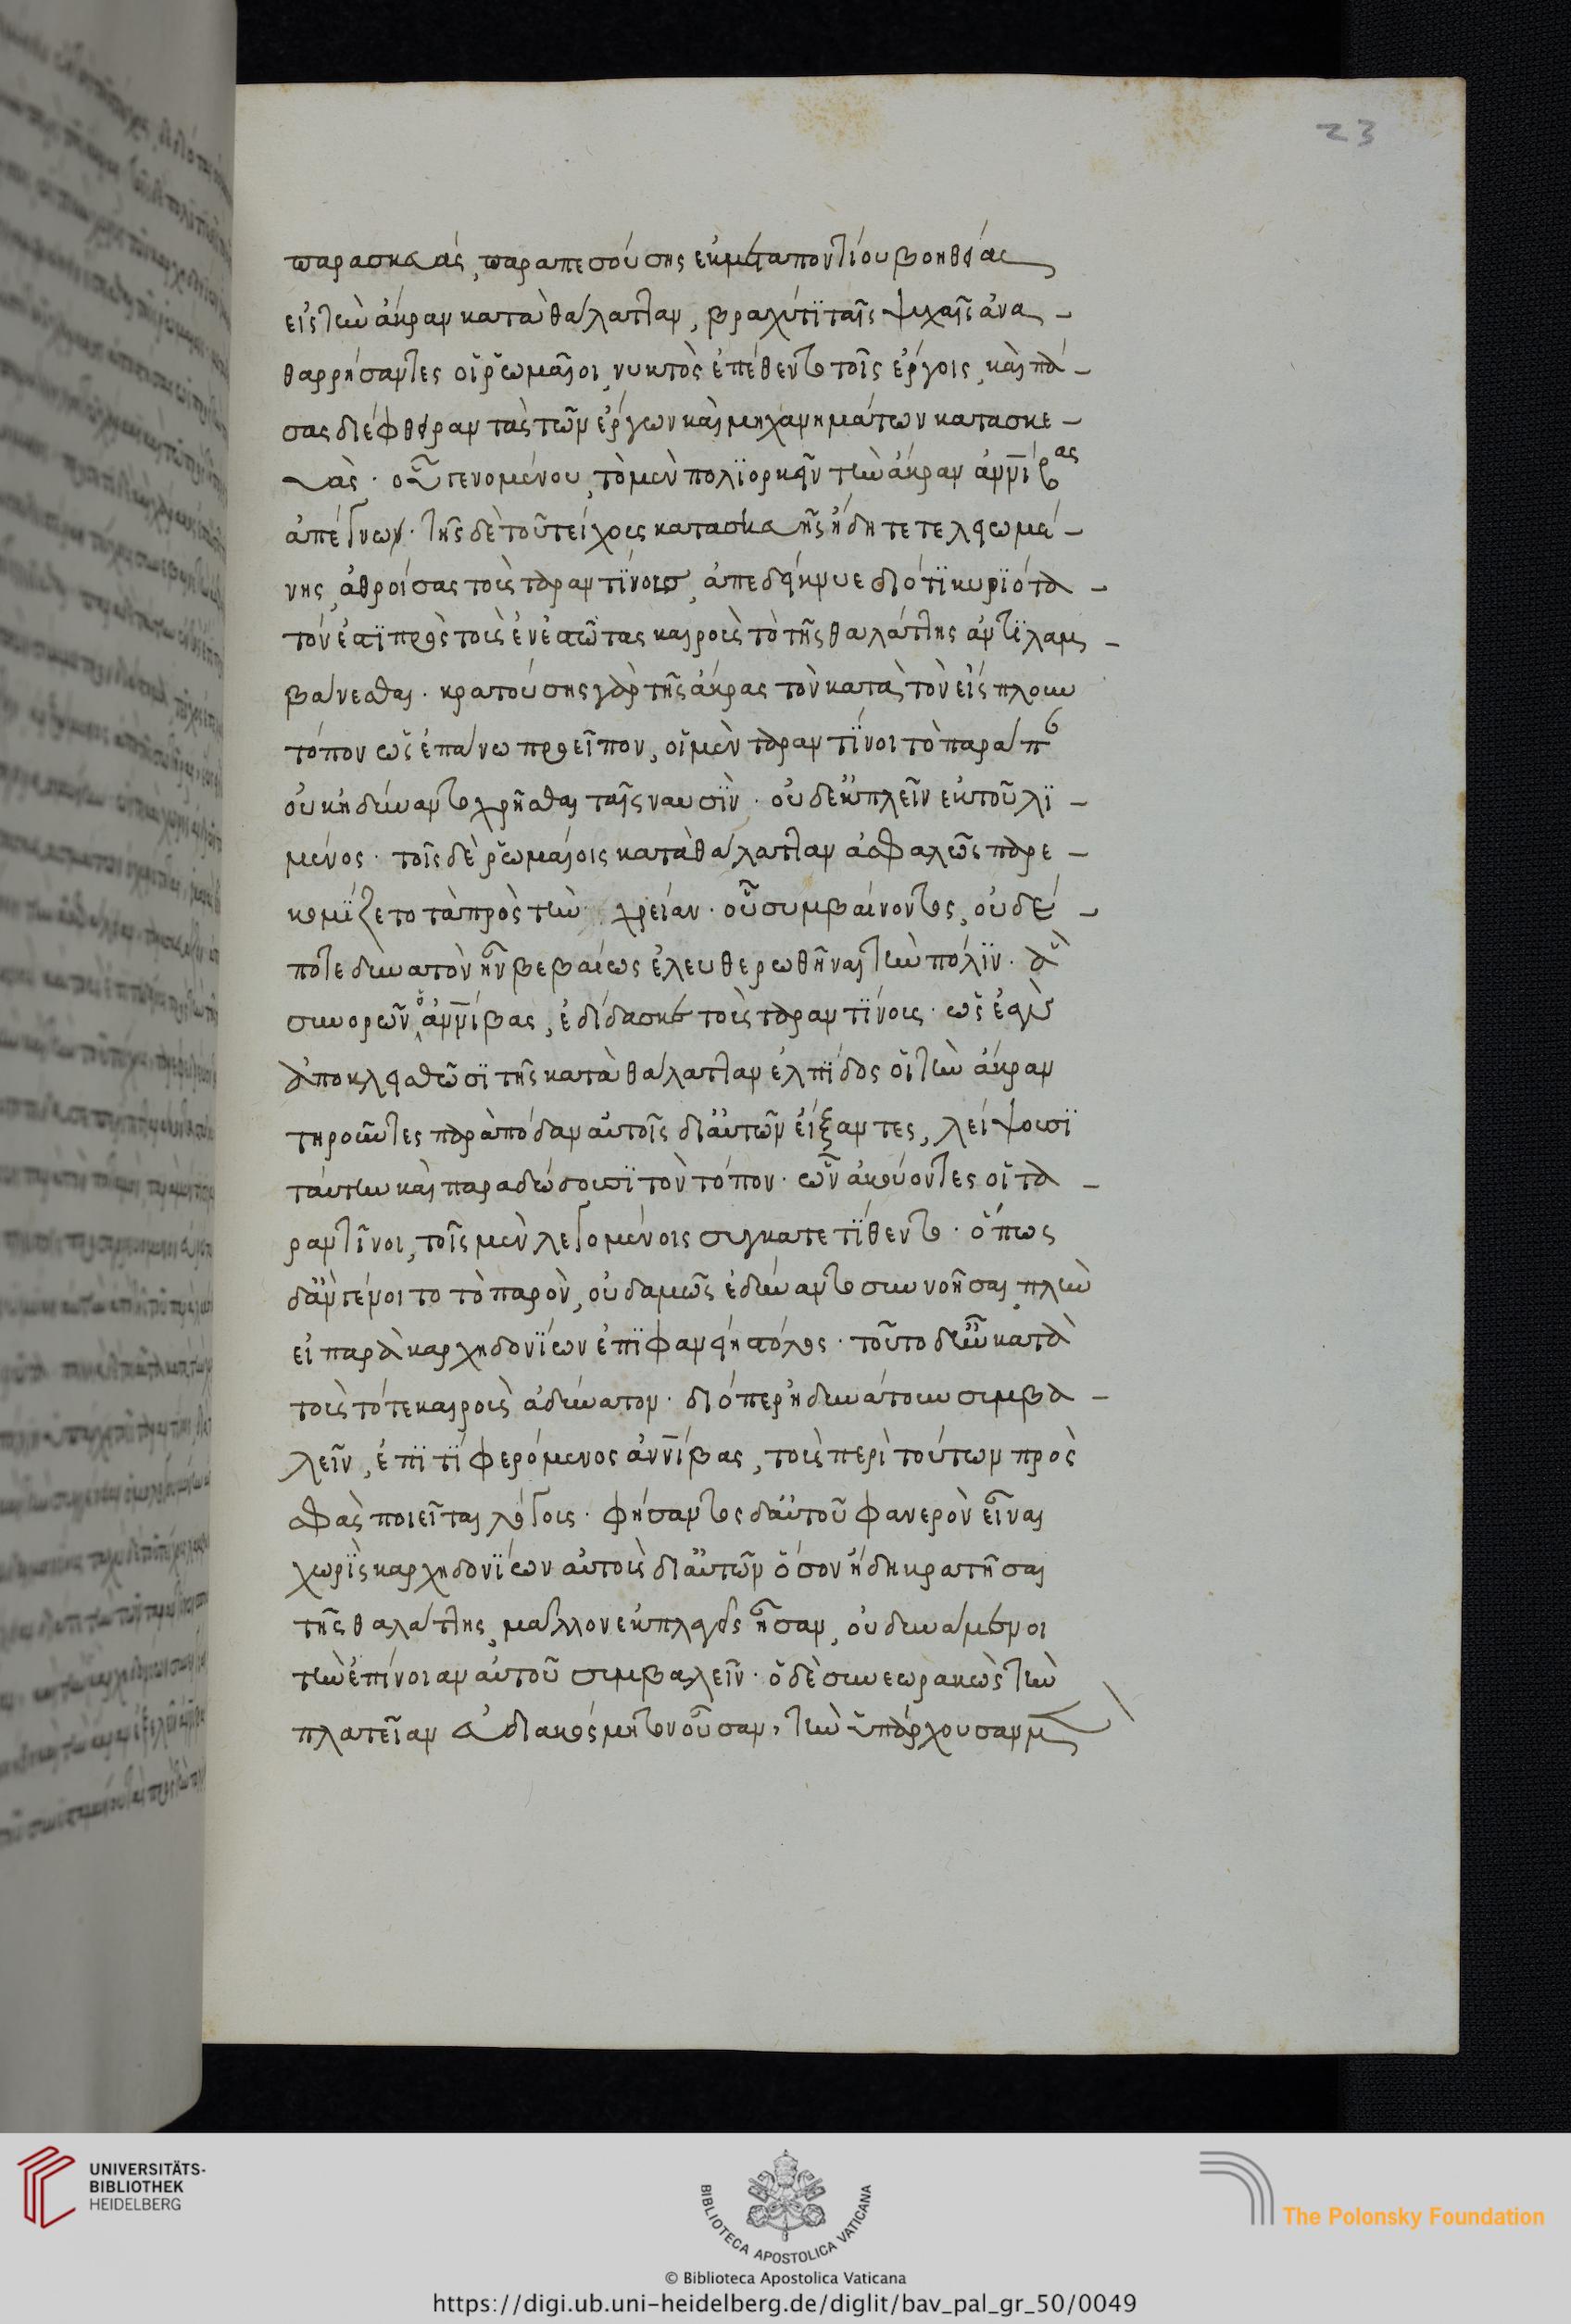 23
παρασκευάς, παραπεσούσης ἐκ μεταποντίου βοηθείας
εἰς τὴν ἄκραν κατὰ θάλατταν, βραχύ τι ταῖς ψυχαῖς ἀνα-
θαρρήσαντες οἱ ῥωμαῖοι, νυκτὸς ἐπέθεντο τοῖς ἔργοις, καὶ πά-
σας διέφθειραν τὰς τῶν ἔργων καὶ μηχανημάτων κατασκε-
υὰς. οὗ γενομένου, τὸ μὲν πολιορκεῖν τὴν ἄκραν ἀννίβας
ἀπέγνω. τῆς δὲ τοῦ τείχους κατασκευῆς ἤδη τετελειωμέ-
νης, ἀθροίσας τοὺς ταραντίνους, ἀπεδείκνυε διότι κυριότα-
τόν ἐστι πρὸς τοὺς ἐνεστῶτας καιροὺς τὸ τῆς θαλάττης ἀντιλαμ-
βάνεσθαι. κρατούσης γὰρ τῆς ἄκρας τὸν κατὰ τὸν εἴσπλουν
τόπον ὡς ἐπάνω προεῖπον, οἱ μὲν ταραντῖνοι τὸ παράπαν
οὐκ ἠδύναντο χρῆσθαι ταῖς ναυσὶν. οὐδ' ἐκπλεῖν ἐκ τοῦ λι-
μένος. τοῖς δὲ ῥωμαίοις κατὰ θάλατταν ἀσφαλῶς παρε-
κομίζετο τὰ πρὸς τὴν χρείαν. οὗ συμβαίνοντος, οὐδέ-
ποτε δυνατὸν ἦν βεβαίως ἐλευθερωθῆναι τὴν πόλιν. ἃ
συνορῶν ὁ ἀννίβας, ἐδίδασκε τοὺς ταραντίνους. ὡς ἐὰν
ἀποκλεισθῶσι τῆς κατὰ θάλατταν ἐλπίδος οἱ τὴν ἄκραν
τηροῦντες παρὰ πόδας αὐτοῖς δι' αὐτῶν εἴξαντες, λείψουσι
ταύτην καὶ παραδώσουσι τὸν τόπον. ὧν ἀκούοντες οἱ τα-
ραντῖνοι, τοῖς μὲν λεγομένοις συγκατετίθεντο. ὅπως
δ' ἂν γένοιτο τὸ παρὸν, οὐδαμῶς ἐδύναντο συννοῆσαι, πλὴν
εἰ παρὰ καρχηδονίων ἐπιφανείη στόλος. τοῦτο δ' ἦν κατὰ
τοὺς τότε καιροὺς ἀδύνατον. διόπερ ἠδυνάτουν συμβα-
λεῖν, ἐπὶ τί φερόμενος ἀννίβας, τοὺς περὶ τούτων πρὸς
σφᾶς ποιεῖται λόγους. φήσαντος δ' αὐτοῦ φανερὸν εἶναι
χωρὶς καρχηδονίων αὐτοὺς δι' αὐτῶν ὅσον ἤδη κρατῆσαι
τῆς θαλάττης, μᾶλλον ἐκπλαγεῖς ἦσαν, οὐ δυνάμενοι
τὴν ἐπίνοιαν αὐτοῦ συμβαλεῖν. ὁ δὲ συνεωρακὼς τὴν
πλατεῖαν εὐδιακόσμητον οὖσαν, τὴν ὑπάρχουσαν μὲν
UNIVERSITÄTS-
BIBLIOTHEK
HEIDELBERG
BIBLIOTECA APOSTOLICA VATICANA
The Polonsky Foundation
© Biblioteca Apostolica Vaticana
https://digi.ub.uni-heidelberg.de/diglit/bav_pal_gr_50/0049